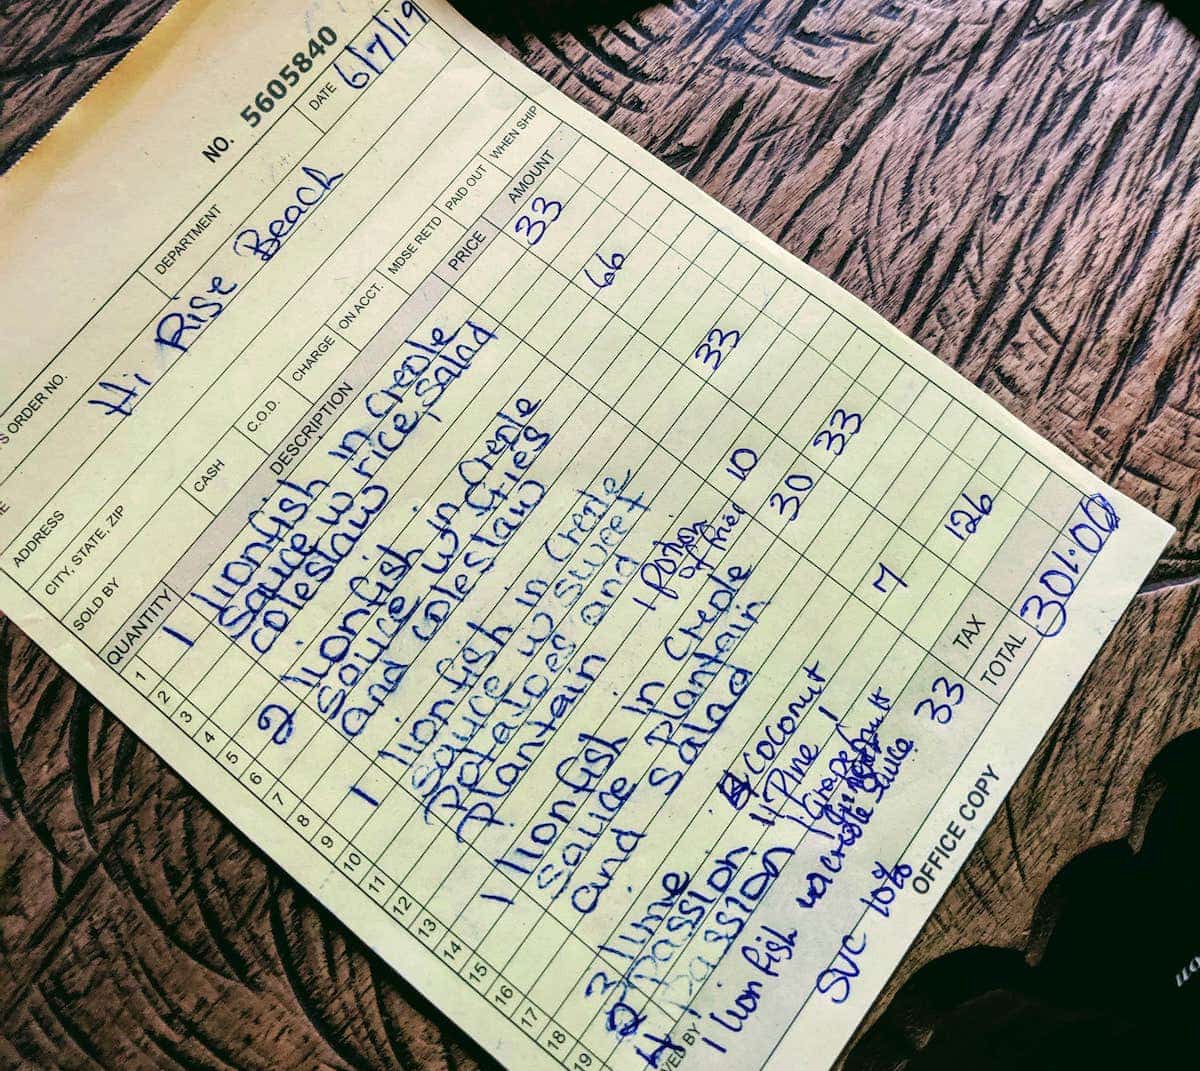 NO. 5605840
S ORDER NO.
DEPARTMENT
DATE 6/7/19
Hi Rise Beach
ADDRESS
CITY, STATE, ZIP
SOLD BY
CASH
C.O.D.
CHARGE
ON ACCT.
MDSE RETD
PAID OUT
WHEN SHIP
QUANTITY
DESCRIPTION
PRICE
AMOUNT
1
2
3
4
5
6
7
8
9
10
11
12
13
14
15
16
17
18
19
1 lionfish in Creole 33
sauce w rice, salad
coleslaw
2 lionfish in Creole 66
sauce w fries
and coleslaw
1 lionfish in Creole 33
sauce w sweet
potatoes and
plantain 1 portion of fried 10
1 lionfish in Creole 33
sauce plantain
and salad
30
3 lime 1 coconut
2 Passion 1 Pine 7
4 Passion 1 Grape 126
1 lionfish w creole sauce 33
SVC 10%
VED BY
TAX
TOTAL 301.00
OFFICE COPY